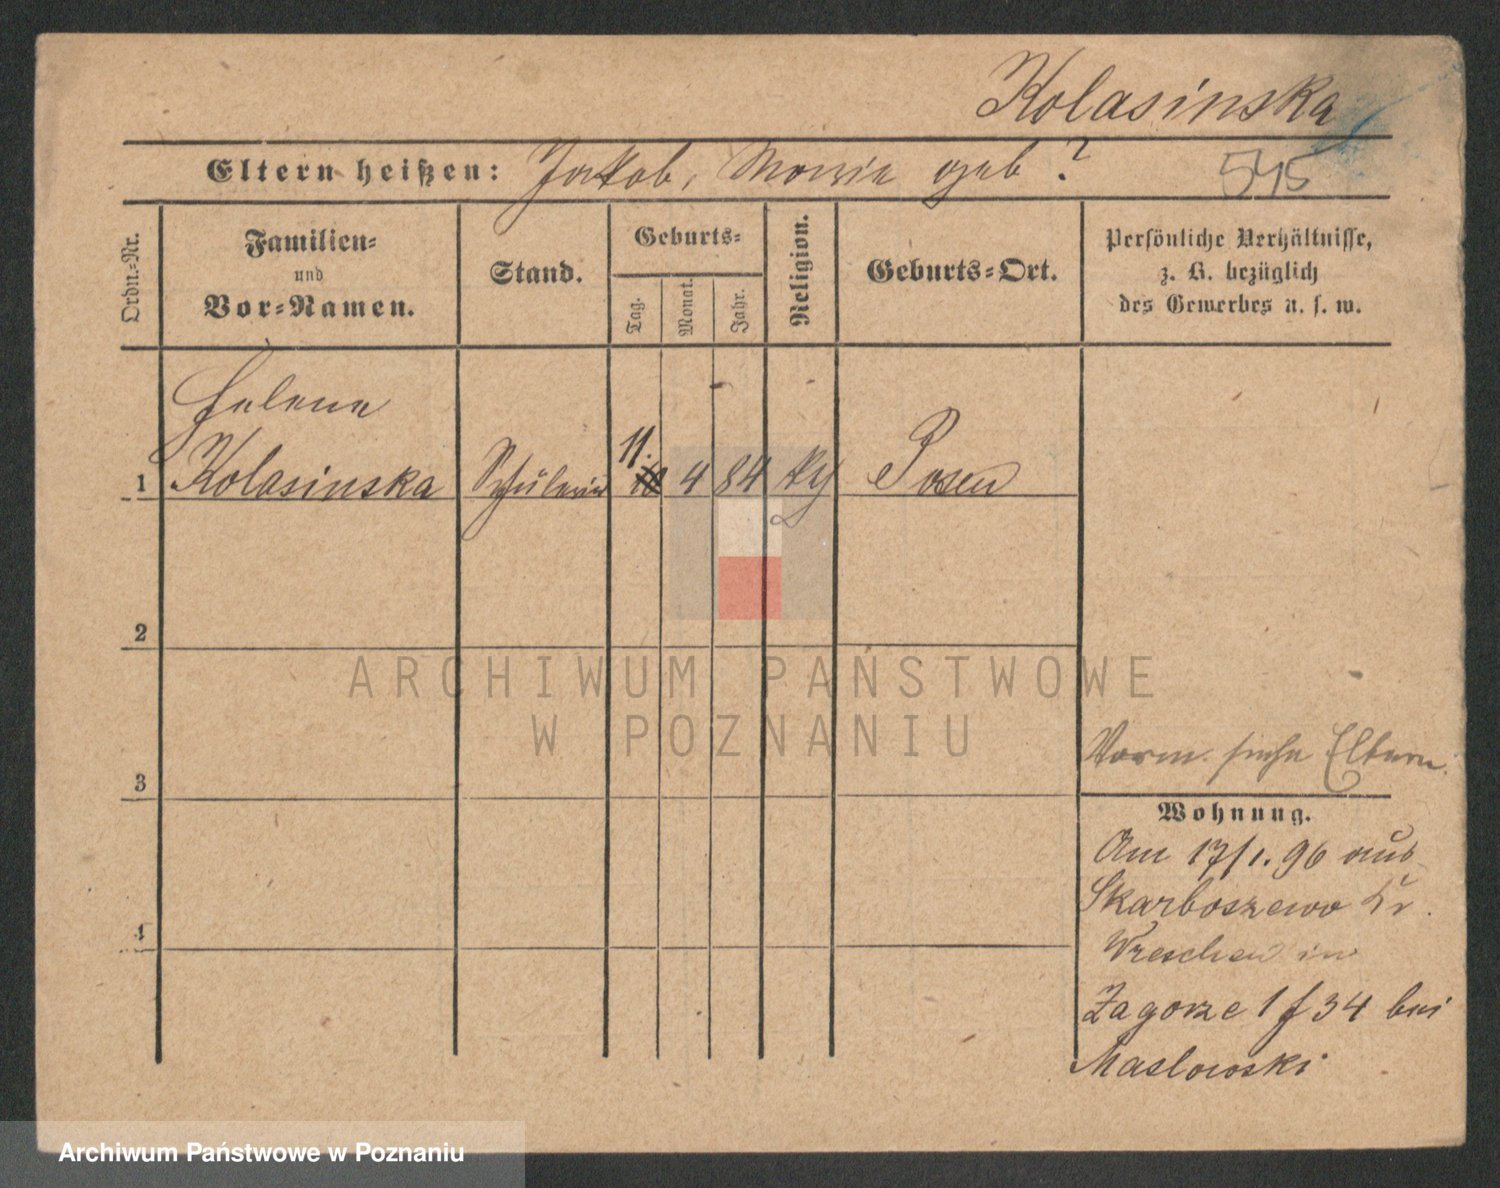 Kolasinska
Eltern heißen: Jakob, Maria geb ?
545
Ordn.=Nr.
Familien=
und
Vor=Namen.
Stand.
Geburts=
Tag.
Monat.
Jahr.
Religion.
Geburts=Ort.
Persönliche Verhältnisse,
z. B. bezüglich
des Gewerbes u. s. w.
Helene
1 Kolasinska Schülerin 11. 10 4 84 Posen
2
3
4
Vorm. siehe Eltern.
Wohnung.
Am 17/1. 96 aus
Skarboszewo Kr.
Wreschen in
Zagorze 1 f 34 bei
Maslowski
ARCHIWUM PAŃSTWOWE
W POZNANIU
Archiwum Państwowe w Poznaniu